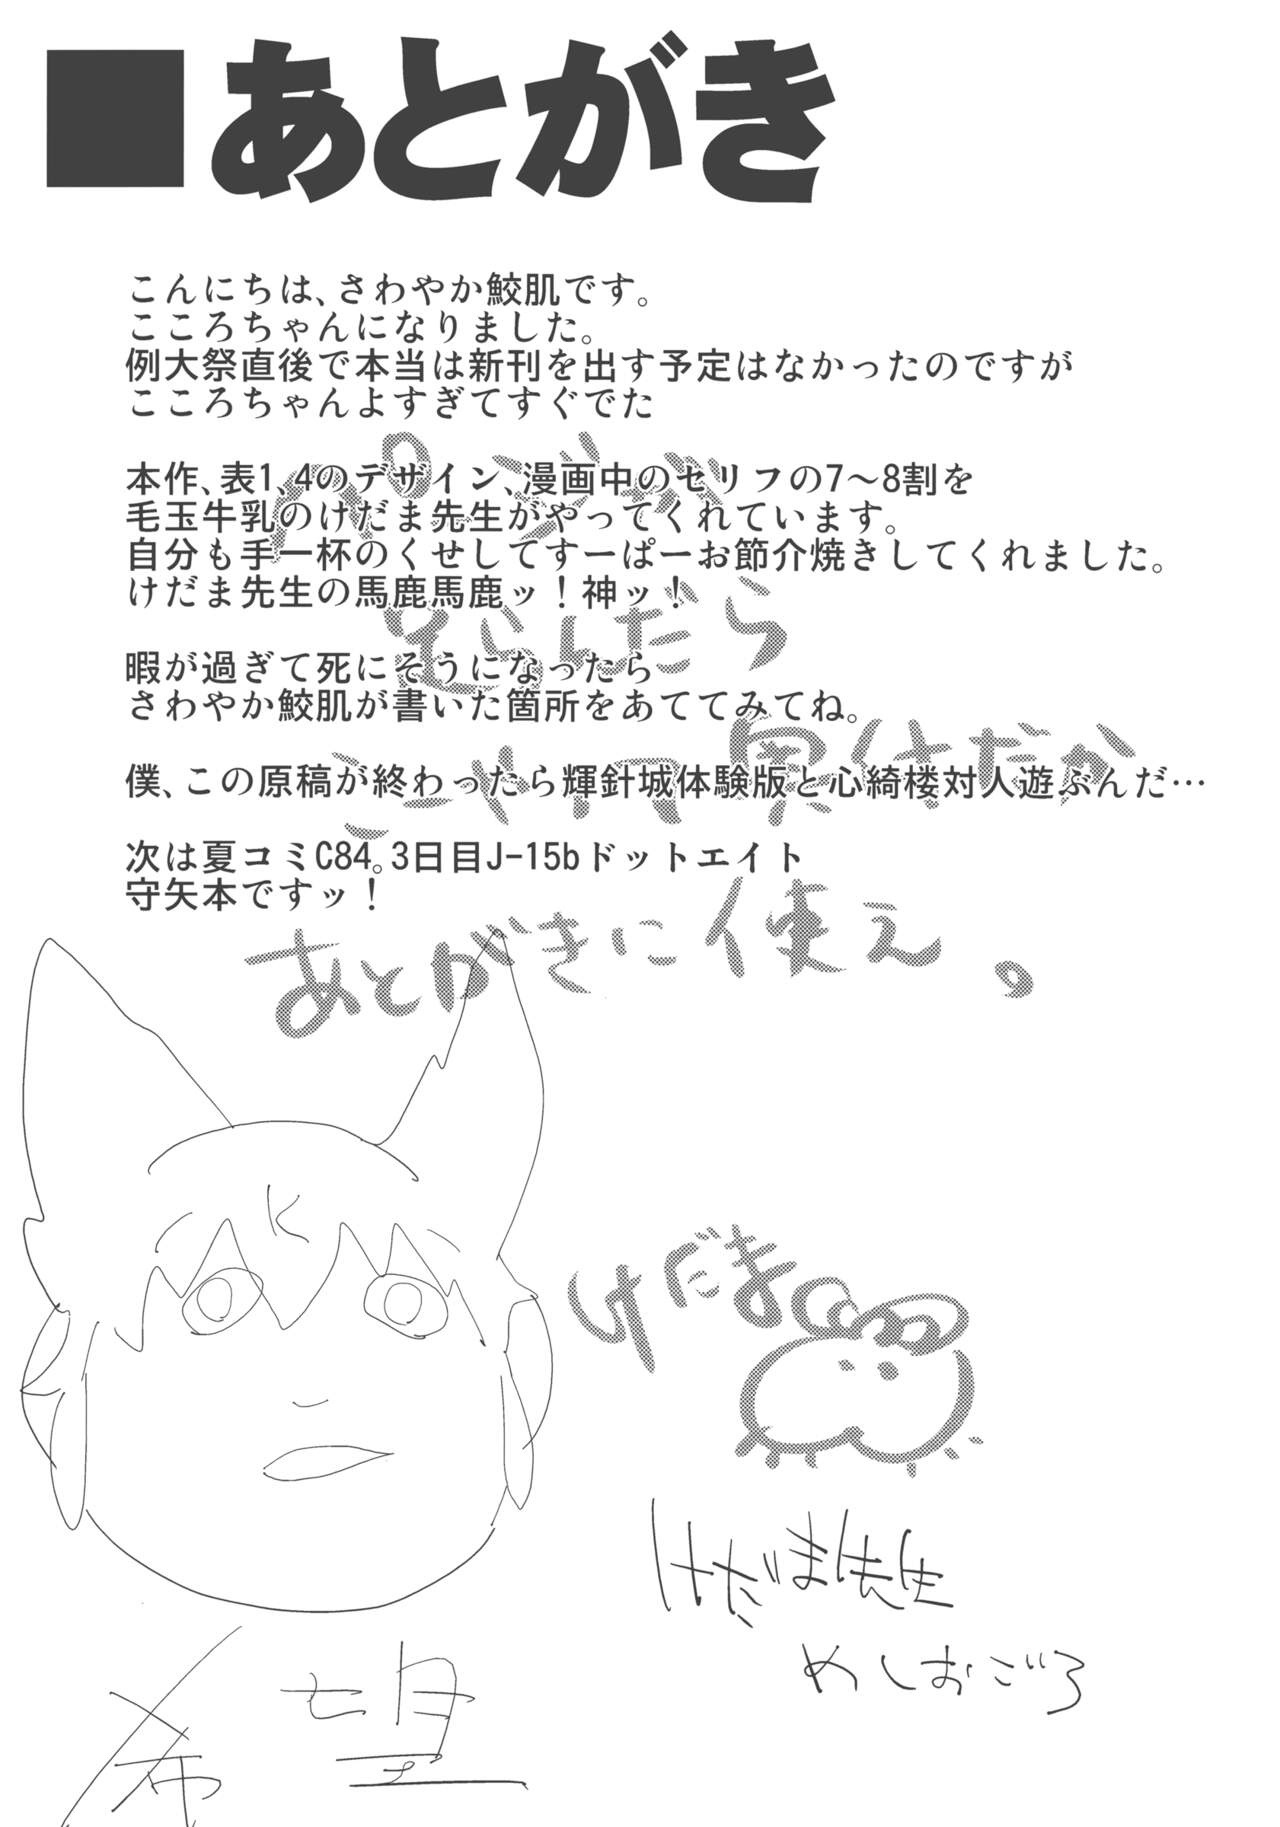 ■あとがき
こんにちは、さわやか鮫肌です。
こころちゃんになりました。
例大祭直後で本当は新刊を出す予定はなかったのですが
こころちゃんよすぎてすぐでた
本作、表1、4のデザイン、漫画中のセリフの7〜8割を
毛玉牛乳のけだま先生がやってくれています。
自分も手一杯のくせしてすーぱーお節介焼きしてくれました。
けだま先生の馬鹿馬鹿ッ！神ッ！
暇が過ぎて死にそうになったら
さわやか鮫肌が書いた箇所をあててみてね。
僕、この原稿が終わったら輝針城体験版と心綺楼対人遊ぶんだ…
次は夏コミC84。3日目J-15bドットエイト
守矢本ですッ！
ページが
足らんだら
あとがきに使え。
けだま
けだま先生
めしおごろ
希望